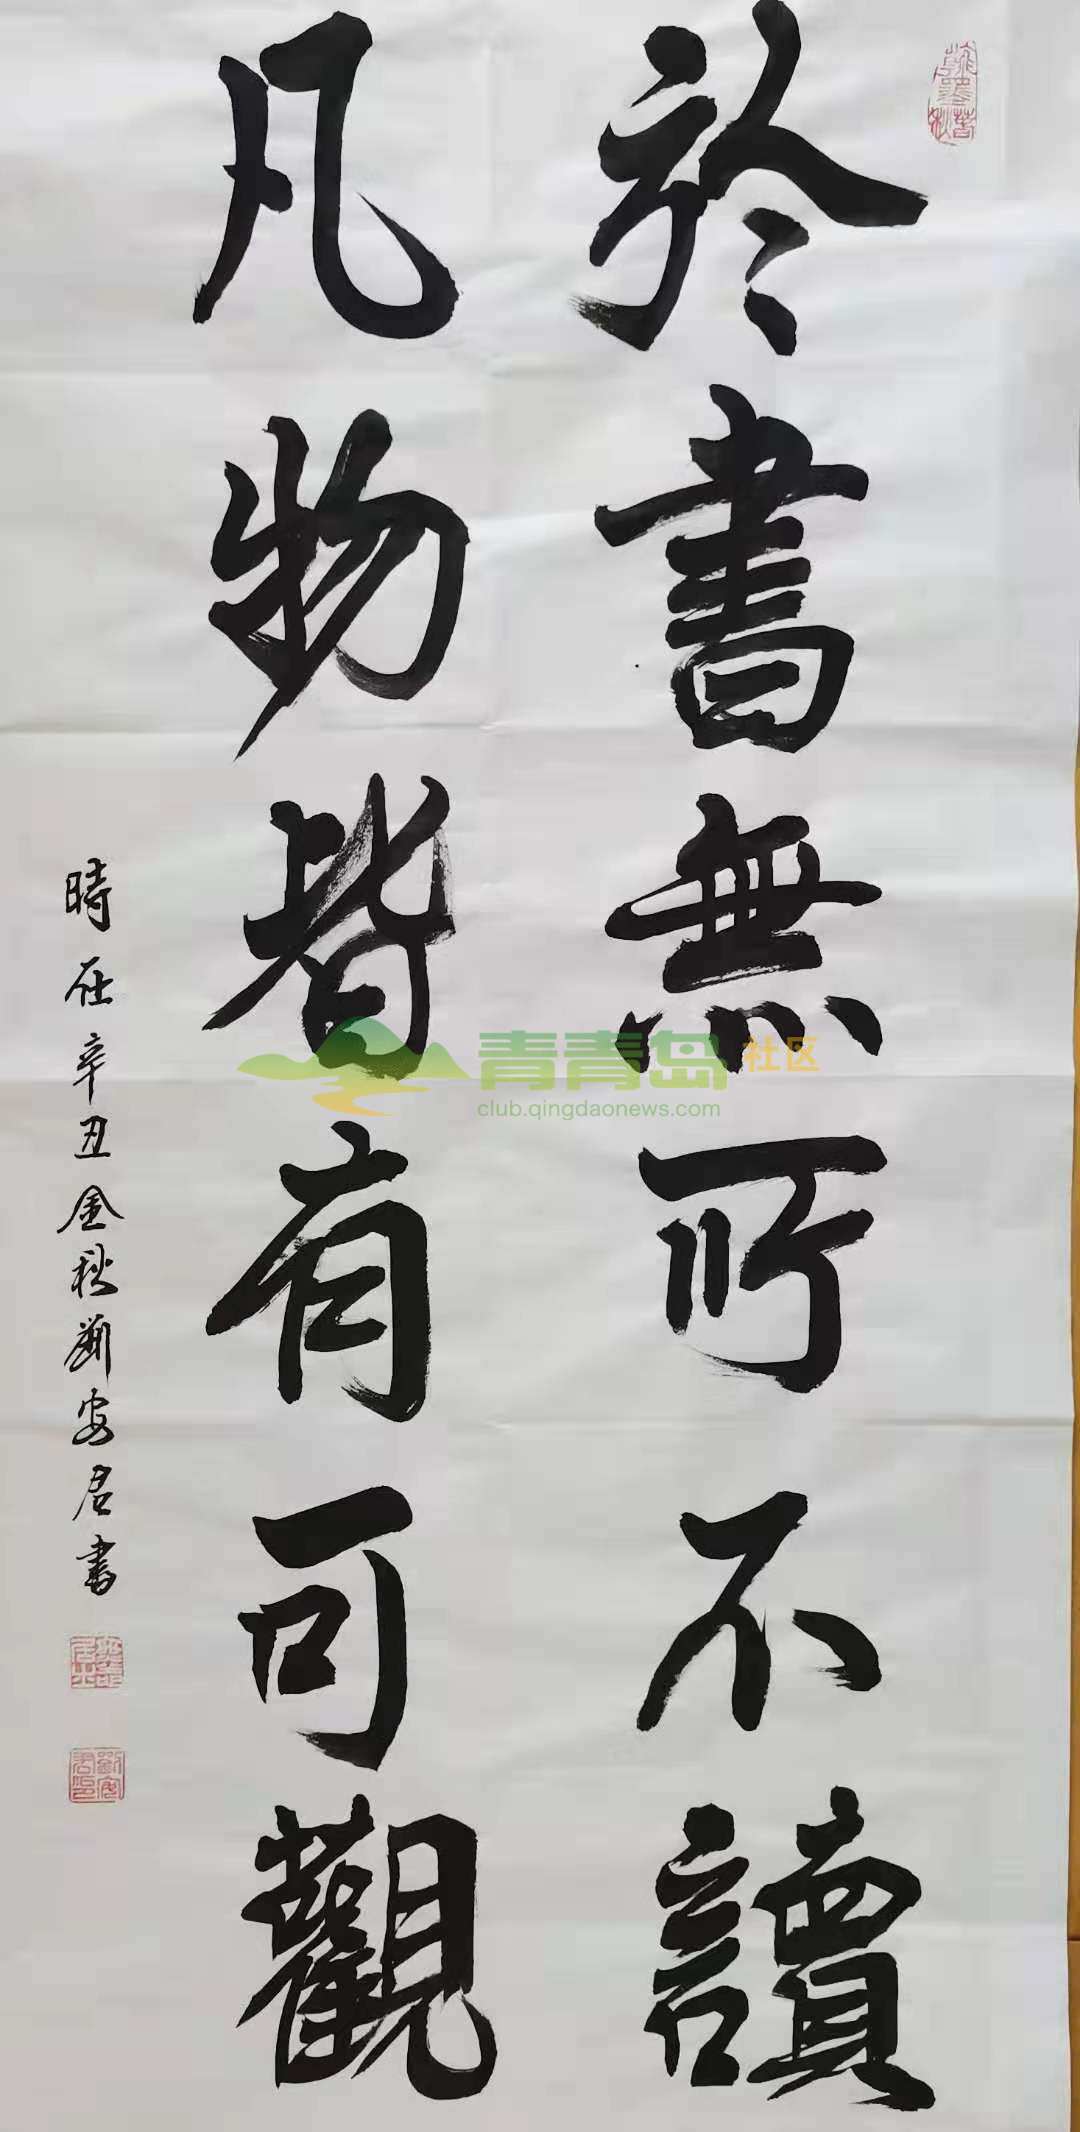 於書無所不讀
凡物皆有可觀
時在辛丑金秋劉安君書
青青岛社区
club.qingdaonews.com